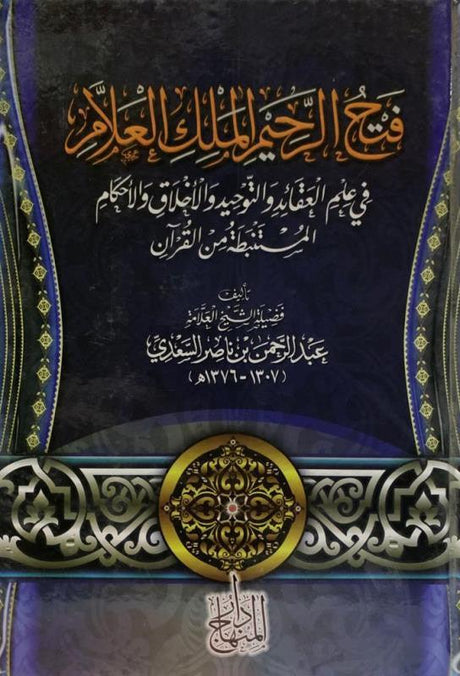 فَتْحُ الرَّحِيمِ المَلِكِ العَلاَّمِ
في عِلْمِ العَقَائِدِ وَالتَّوْحِيدِ وَالأَخْلَاقِ وَالأَحْكَامِ
المُسْتَنْبَطَةُ مِنَ القُرْآنِ
تأليف
فَضِيلَةِ الشَّيْخِ العَلَّامَةِ
عَبْدِ الرَّحْمَنِ بْنِ نَاصِرِ السَّعْدِيِّ
(١٣٠٧-١٣٧٦هـ)
دار
المنهاج